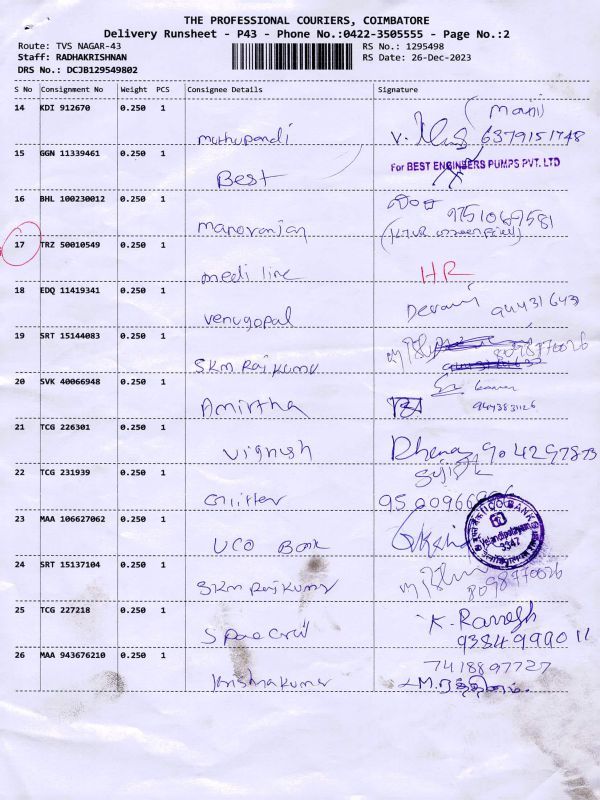 THE PROFESSIONAL COURIERS, COIMBATORE
Delivery Runsheet - P43 - Phone No.:0422-3505555 - Page No.:2
Route: TVS NAGAR-43 RS No.: 1295498
Staff: RADHAKRISHNAN RS Date: 26-Dec-2023
DRS No.: DCJB129549802
S No Consignment No Weight PCS Consignee Details Signature
14 KDI 912670 0.250 1 (Mani)
muthupandi V. 6379151748
15 GGN 11339461 0.250 1 For BEST ENGINEERS PUMPS PVT. LTD
Best
16 BHL 100230012 0.250 1
manoranjan 9751069581
17 TRZ 50010549 0.250 1
medi line HR
18 EDQ 11419341 0.250 1
venugopal Devani
19 SRT 15144083 0.250 1
SKM Raj kumar 8098770026
20 SVK 40066948 0.250 1
Amirtha 9443831126
21 TCG 226301 0.250 1
Vignesh Dhenaz 904297873
22 TCG 231939 0.250 1
Glitter
23 MAA 106627062 0.250 1 UCO BANK
UCO Bank 3347
24 SRT 15137104 0.250 1
SKM Raj kumar 8098770026
25 TCG 227218 0.250 1 K. Ramesh
Space Civil 9384999011
26 MAA 943676210 0.250 1 7418897727
Krishnakumar M. ரத்தினம்.